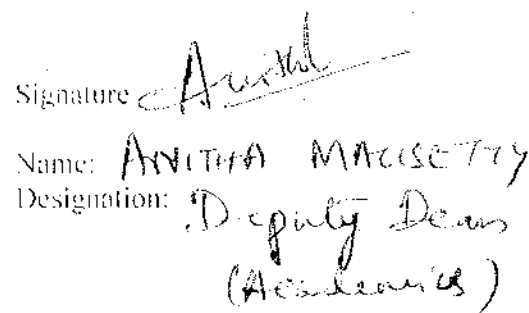 Signature Anitha
Name: ANITHA MALISETTY
Designation: Deputy Dean
(Academics)